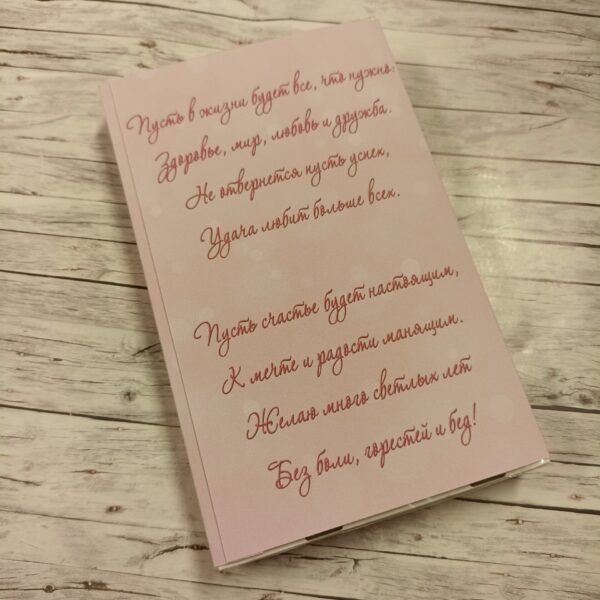 Пусть в жизни будет все, что нужно:
Здоровье, мир, любовь и дружба.
Не отвернется пусть успех,
Удача любит больше всех.
Пусть счастье будет настоящим,
К мечте и радости манящим.
Желаю много светлых лет
Без боли, горестей и бед!